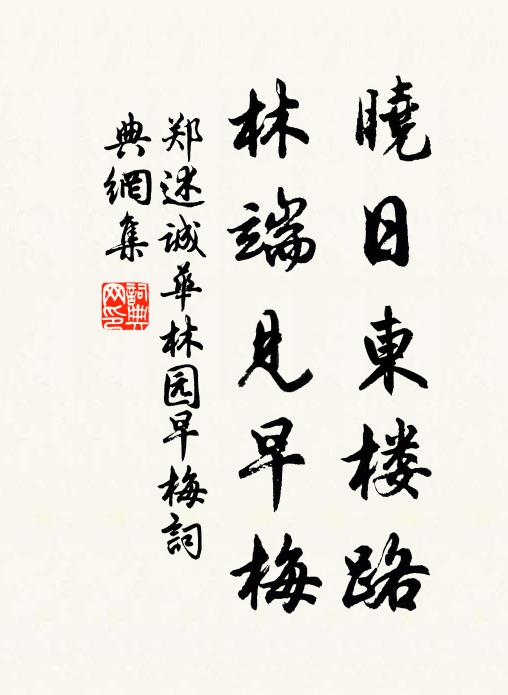 曉日東楼路
林端見早梅
郑述诚華林园早梅詞
典網集
詞典网印